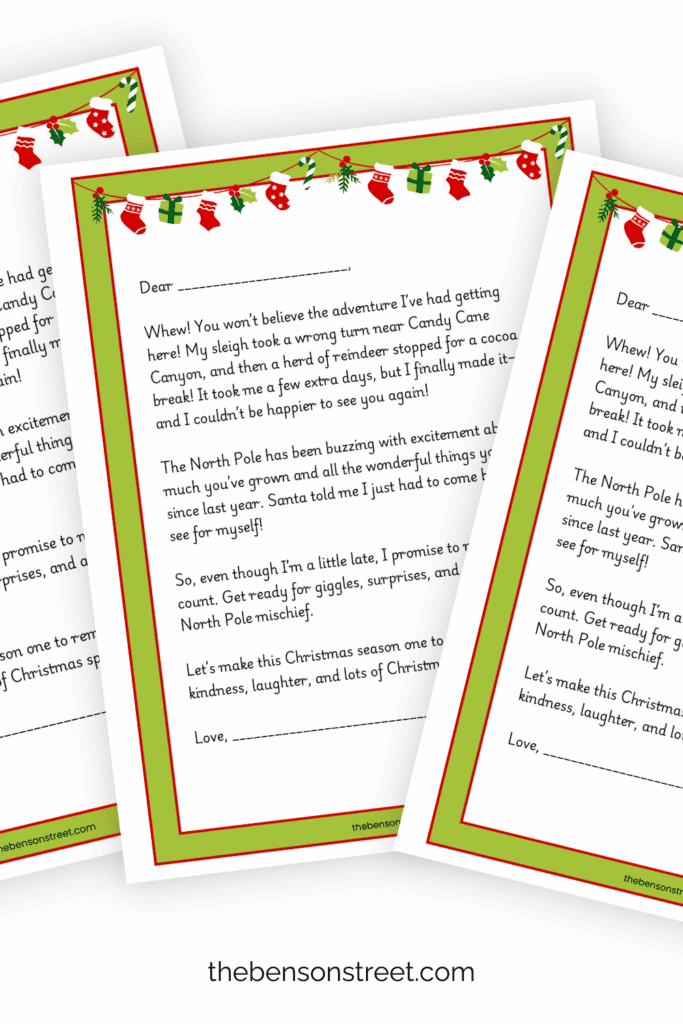 had
for
finally
had to
promise to
and
one to
Christmas
Dear ________________________,
Whew! You won't believe the adventure I've had getting
here! My sleigh took a wrong turn near Candy Cane
Canyon, and then a herd of reindeer stopped for a cocoa
break! It took me a few extra days, but I finally made it—
and I couldn't be happier to see you again!
The North Pole has been buzzing with excitement
much you've grown and all the wonderful things
since last year. Santa told me I just had to come
see for myself!
So, even though I'm a little late, I promise to
count. Get ready for giggles, surprises, and
North Pole mischief.
Let's make this Christmas season one to
kindness, laughter, and lots of
Love, ___________________________
Dear ____
Whew! You
here! My
Canyon, and
break! It took
and I couldn't
The North Pole
much you've
since last year.
see for myself!
So, even though I'm a
count. Get ready for
North Pole mischief.
Let's make this
kindness, laughter, and
Love, ____________________
thebensonstreet.com